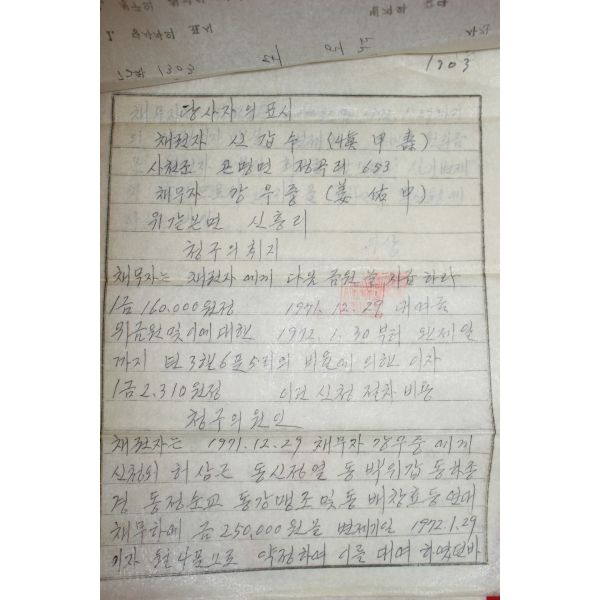 1303
1903
당사자의 표시
채권자 신갑수
사천군 곤명면 정곡리 653
채무자 강우중 (姜佑中)
위같은면 신흥리
청구의 취지
채무자는 채권자에게 다음 금원을 지급하라
1금 160.000원정 1971. 12. 29 대여금
위금원및이에대한 1972. 1. 30부터 완제일
까지 연3할6푼5리의 비율에 의한 이자
1금2.310원정 이건 신청 절차 비용
청구의 원인
채권자는 1971.12.29 채무자 강우중에게
신청외 허삼근 동신정열 동박위갑 동하종
경 동정순교 동강맹조 및 동 배창효등 연대
채무하에 금 250,000원을 변제기일 1972.1.29
이자 월 4푼으로 약정하여 이를 대여 하였던바